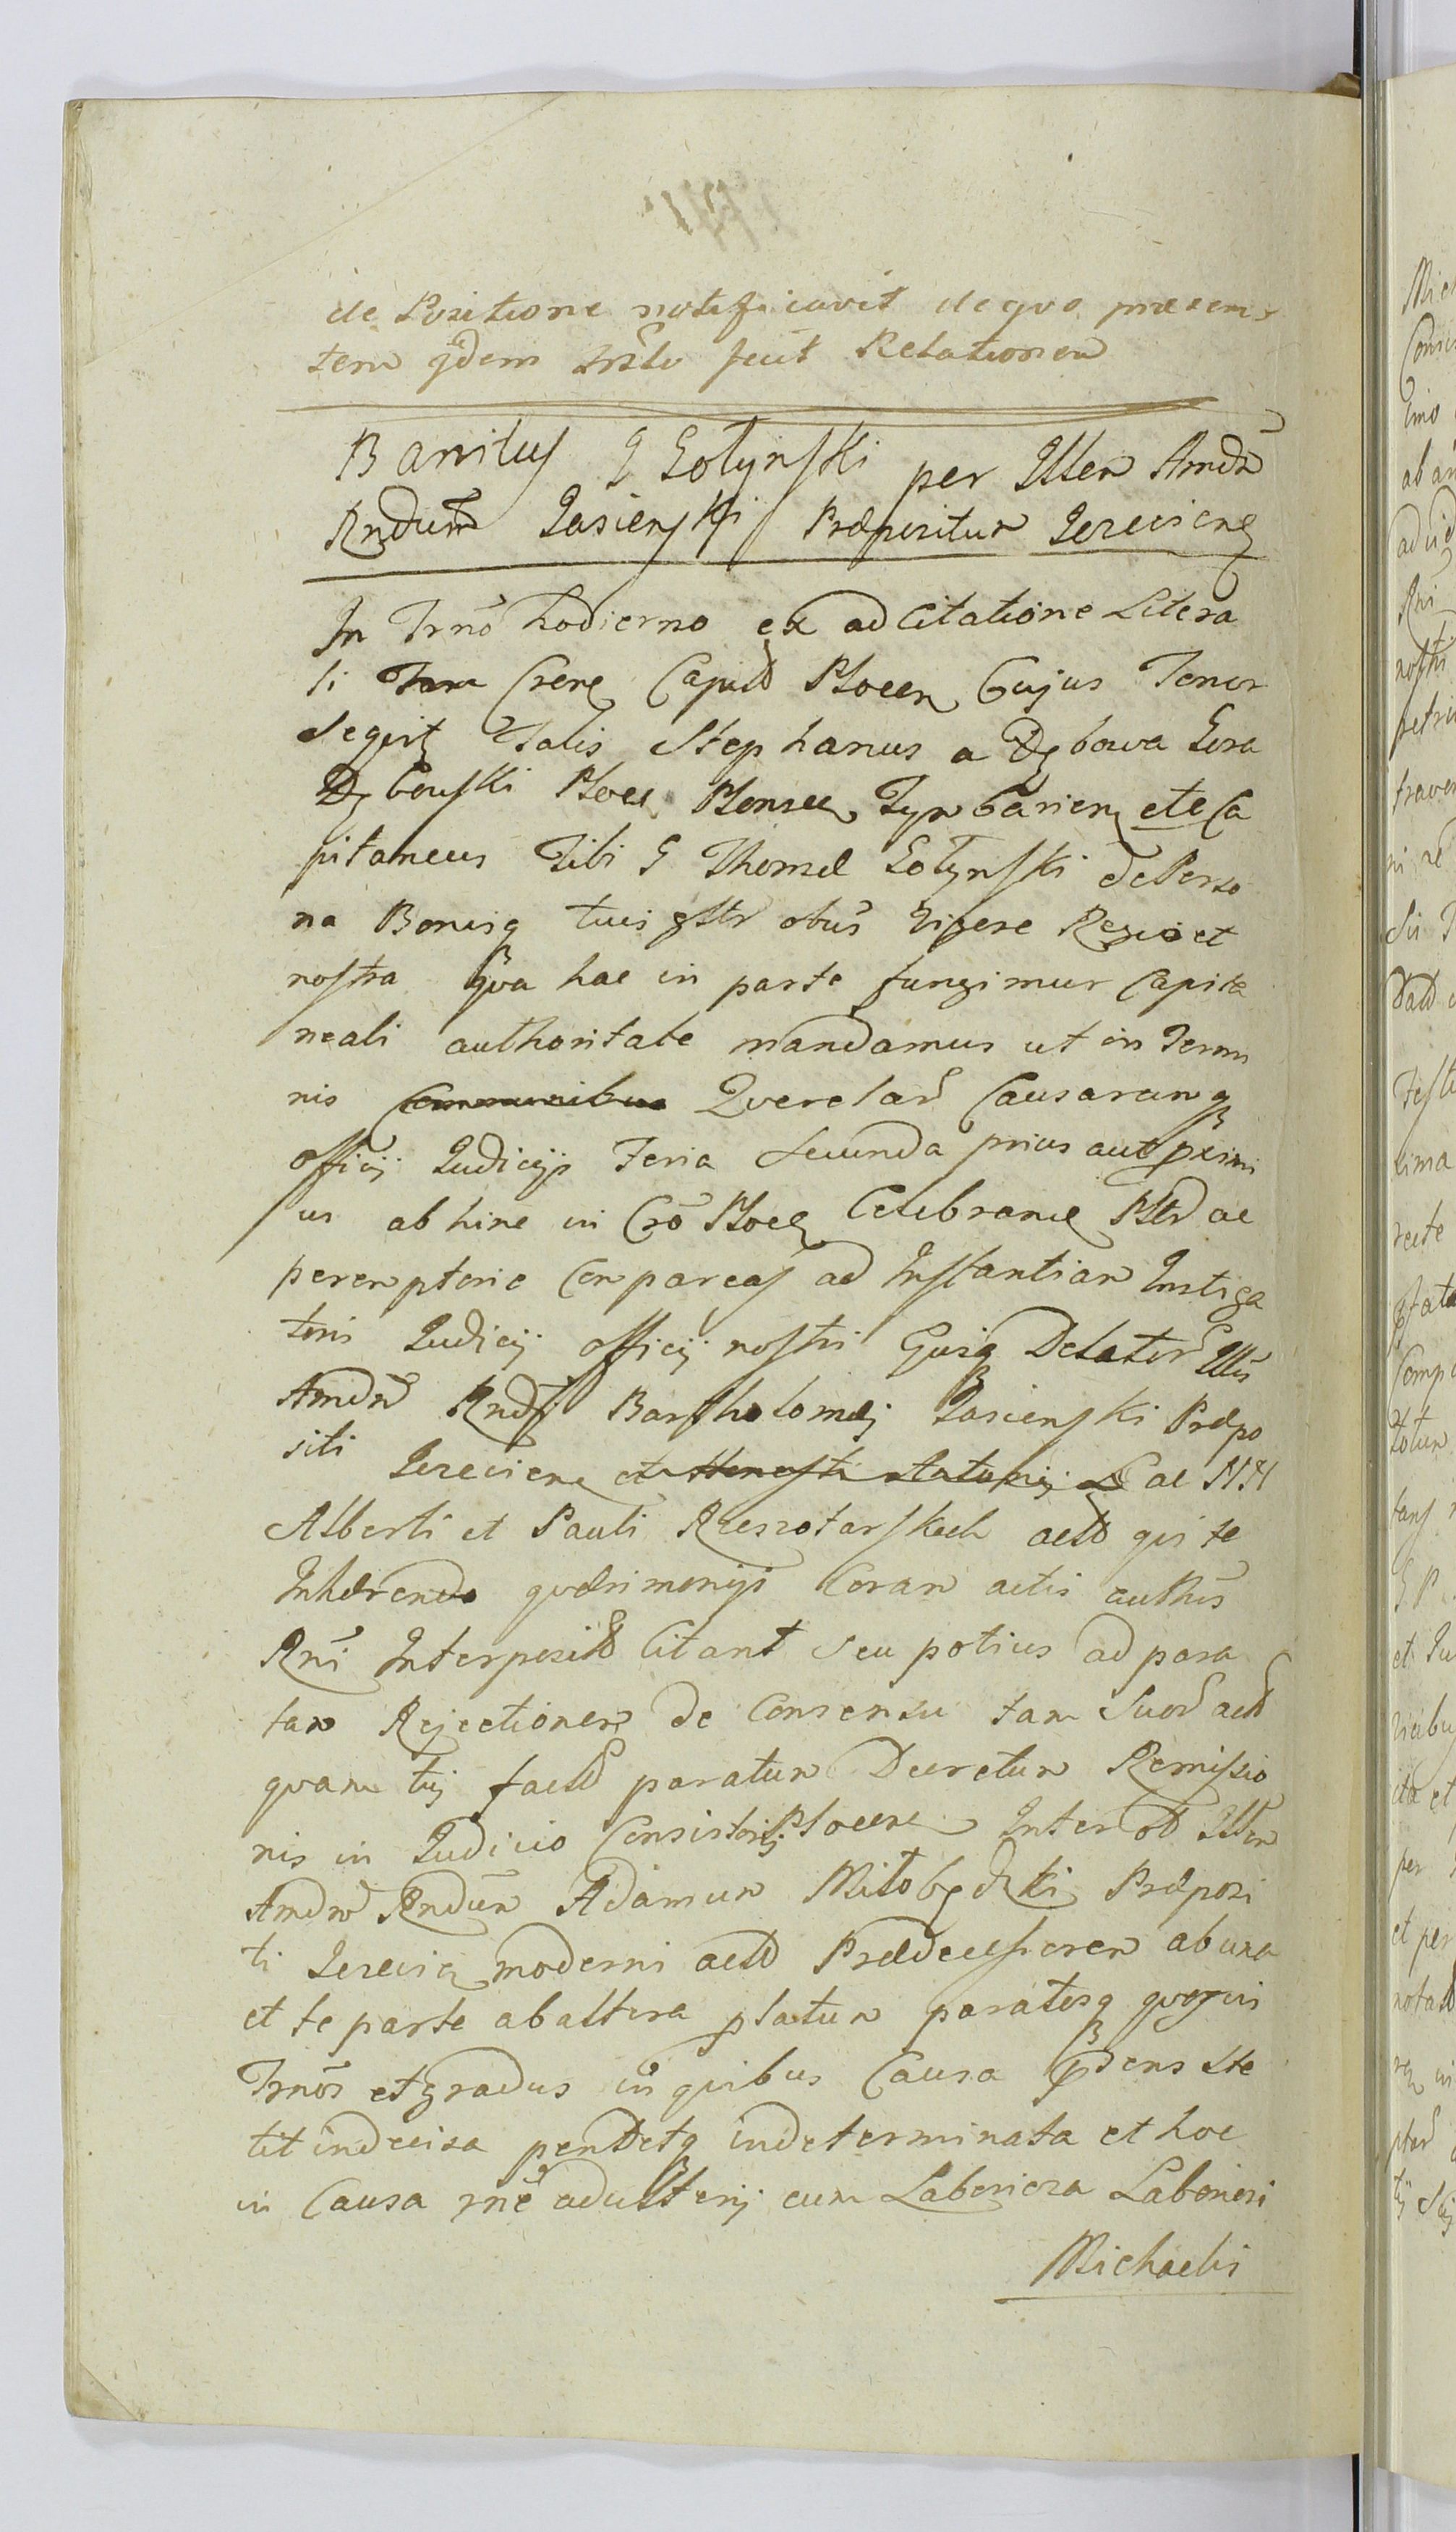 de Positione notificavit de quo præsen-
tem ɋdem fecit Relationem
Banitus G Gołynski per Illem Amdm
Rndum Jasienski Præpositum
In Trno hodierno ex ad Citatione Litera
li Crens Captd Plocen Cujus Tenor
seqvit Talis Stephanus a Dębowa Gora
Dębowski Plocen Plonscen etc Ca
pitaneus Tibi G Thomæ Gołynski de Perso
na Bonisq tuis gltr obus vigore Regio et
nostra qva hac in parte fungimur Capita
neali authoritate mandamus ut in Termi
nis Communibus Qverelar Causarumq
officij Judicijs Feria secunda prius aut proxi
us ab hinc in Cro Plocen Celebrand Pltr ac
peremptorie Compareas ad Instantiam Instiga
toris Judicij officij nostri Ejusq Delator Illis
Amdm Rndi Bartholomæi Jasienski Præpo
siti et Honesti Antonij ac NN
Alberti et Pauli Rzeszotarskich actor qui te
Inhærendo qværimonijs Coram actis authis
Rni Interposit Citant seu potius ad para
tam Rejectionem de Consensu tam Suor actor
quam tuj factd paratum Decretum Remissio
nis in Judicio Consistorij Plocen Inter Illem
Amdm Rndum Adamum Miłobędzki Præposi
ti moderni actor Prædecessorem ab una
et te parte ab altera platum paratosq quosvis
Trnos et gradus in quibus Causa pdens ste
tit indecisa pendetq indeterminata et hoc
in Causa rne adulterij cum Laboriosa Laboriosi
Michaelis